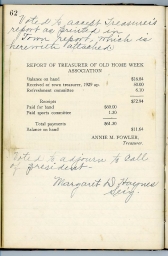 62
Voted to accept Treasurer's
report as printed in
Town report which is
herewith attached
REPORT OF TREASURER OF OLD HOME WEEK
ASSOCIATION
Balance on hand $16.84
Received of town treasurer, 1929 50.00
Entertainment committee 6.10
Receipts $72.94
Paid for band $60.00
Paid sports committee 1.30
Total payments $61.30
Balance on hand $11.64
ANNIE M. FOWLER,
Treasurer.
Voted to adjourn to call
of president -
Margaret D. Haynes
Secy.